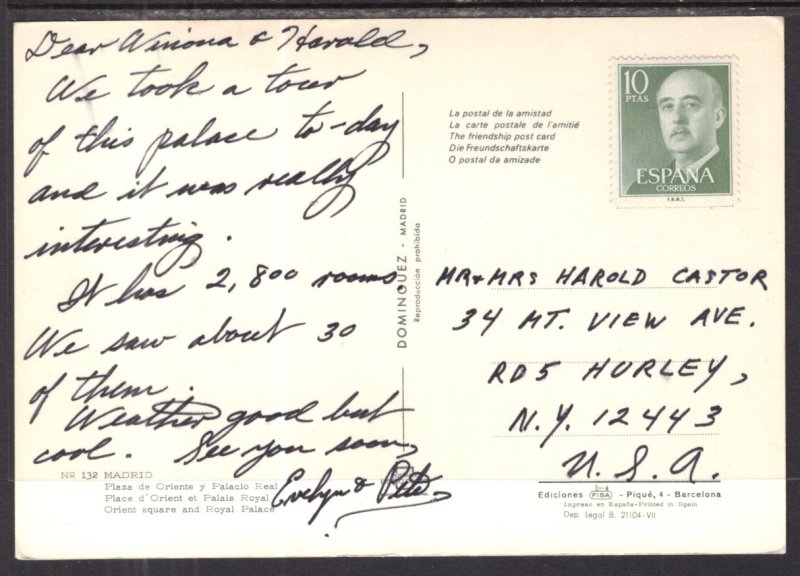 Dear Winona & Harold,
We took a tour
of this palace to-day
and it was really
interesting.
It has 2,800 rooms
We saw about 30
of them.
Weather good but
cool. See you soon,
Evelyn & Pete
Nº 132 MADRID
Plaza de Oriente y Palacio Real
Place d'Orient et Palais Royal
Orient square and Royal Palace
DOMINGUEZ - MADRID
Reproducción prohibida
La postal de la amistad
La carte postale de l'amitié
The friendship post card
Die Freundschaftskarte
O postal da amizade
10
PTAS
ESPAÑA
CORREOS
F.N.M.T.
MR + MRS HAROLD CASTOR
34 MT. VIEW AVE.
RD5 HURLEY,
N.Y. 12443
U.S.A.
Ediciones FISA - Piqué, 4 - Barcelona
Impreso en España-Printed in Spain
Dep. Legal B. 21104-VII